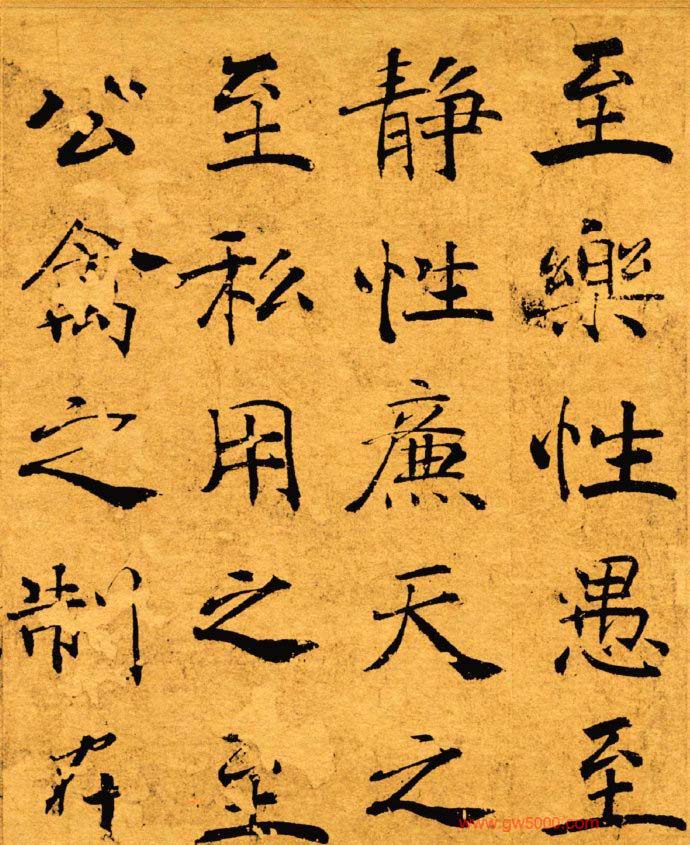 至樂性愚至
静性廉天之
至私用之至
公禽之制
www.gw5000.com